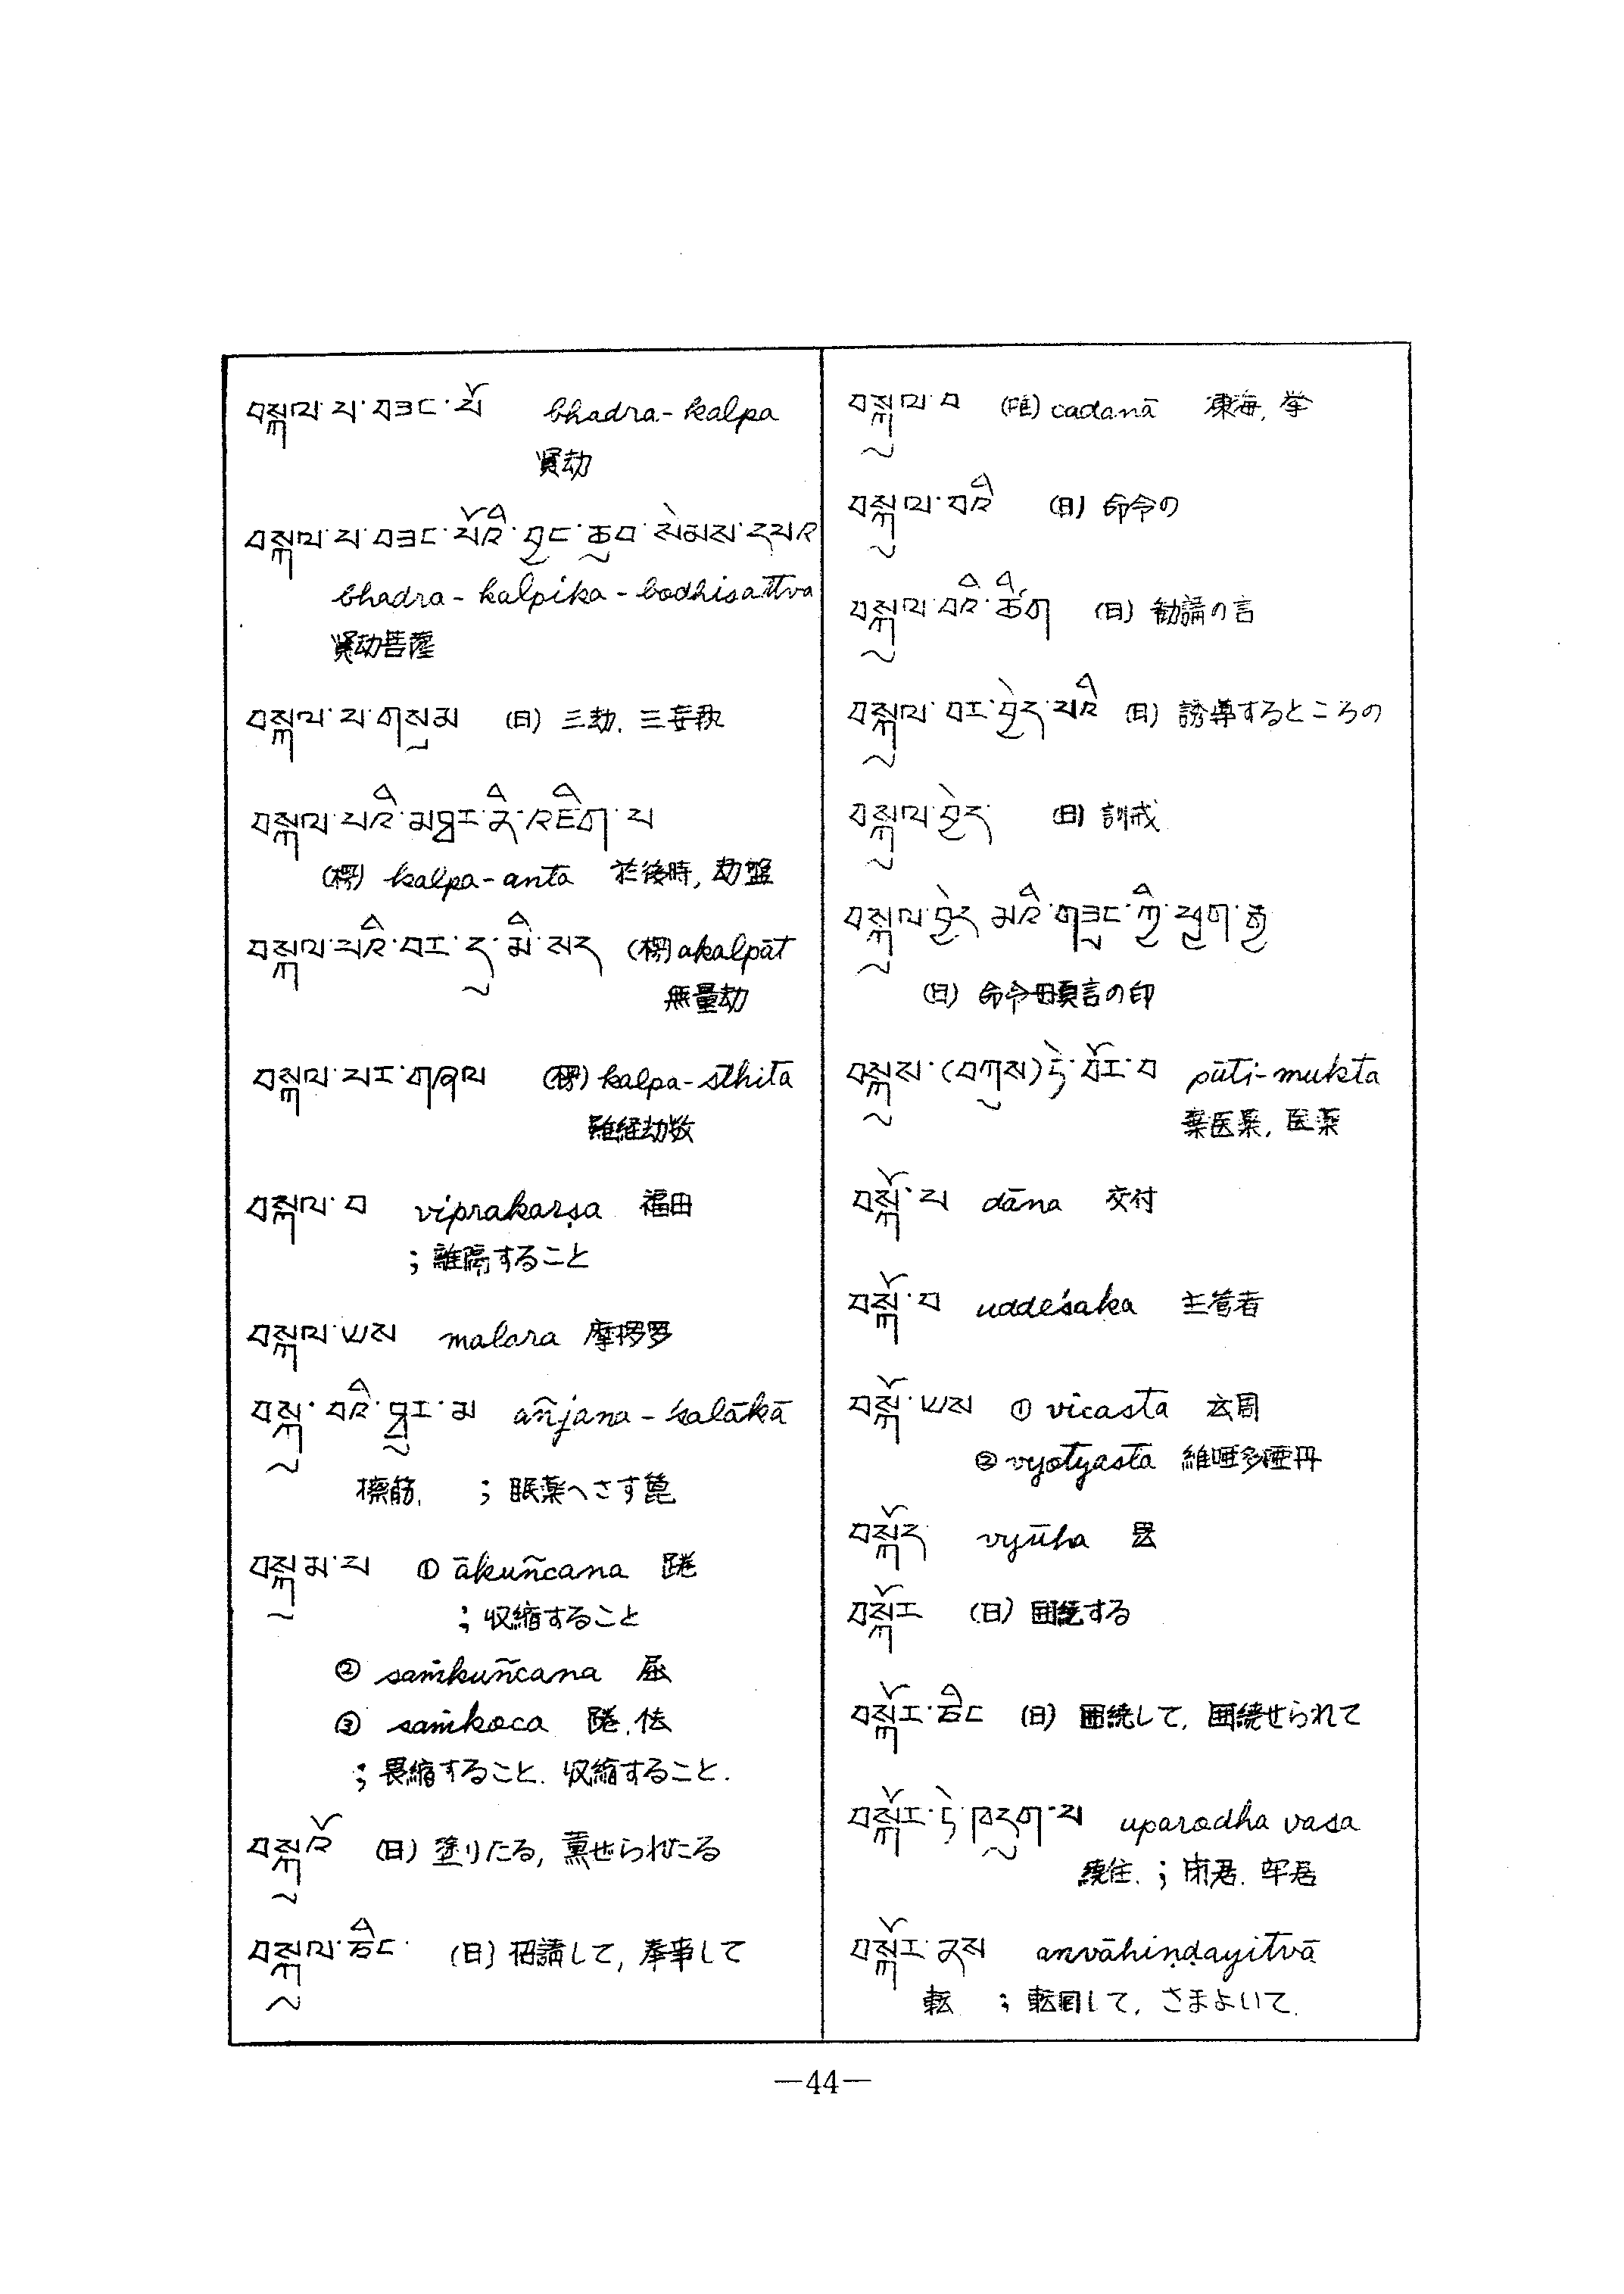 བསྐལ་པ་བཟང་པོ bhadra-kalpa
賢劫
བསྐལ་པ་བཟང་པོའི་བྱང་ཆུབ་སེམས་དཔའ
bhadra-kalpika-bodhisattva
賢劫菩薩
བསྐལ་པ་གསུམ (日) 三劫. 三妄執
བསྐལ་པའི་མཐའ་ནི་འཇིག་པ
(楞) kalpa-anta 於後時, 劫盡
བསྐལ་པའི་བར་དུ་མི་མད (楞) akalpāt
無量劫
བསྐལ་པར་གནས (楞) kalpa-sthita
雖経劫数
བསྐལ་བ viprakarṣa 福田
; 離隔すること
བསྐལ་ཡས malara 摩攞羅
བསྐུ་བའི་ཐུར་མ añjana-śalākā
擦筋. ; 眠薬へさす篦
བསྐུམ་པ ① ākuñcana 踡
; 収縮すること
② saṁkuñcana 屈
③ saṁkoca 踡, 怯
; 畏縮すること. 収縮すること.
བསྐུའོ (日) 塗りたる, 薫せられたる
བསྐུལ་ཅིང་ (日) 招請して, 奉事して
བསྐུལ་བ cadanā 海, 挙
བསྐུལ་བའི (日) 命令の
བསྐུལ་བའི་ཚིག (日) 勧請の言
བསྐུལ་བར་བྱེད་པའི (日) 誘導するところの
བསྐུལ་བྱེད (日) 訓戒
བསྐུལ་བྱེད་མའི་གཟུང་ཀྱི་ཕྱག་རྒྱ
(日) 命令母真言の印
བསྐུས་(བཀུས)ཏེ་བོར་བ pūti-mukta
棄医薬, 医薬
བསྐོ་པ dāna 交付
བསྐོ་བ uddeśaka 主管者
བསྐོ་ཡས ① vicasta 玄周
② vyotyasta 維唖多唖丹
བསྐོད vyūha 曇
བསྐོར (日) 囲繞する
བསྐོར་ཅིང (日) 囲繞して, 囲繞せられて
བསྐོར་ཏེ་བཞུག་པ uparodha vasa
繞住. ; 閉居. 牢居
བསྐོར་ནས anvāhiṇḍayitvā
転 ; 転回して, さまよいて.
—44—